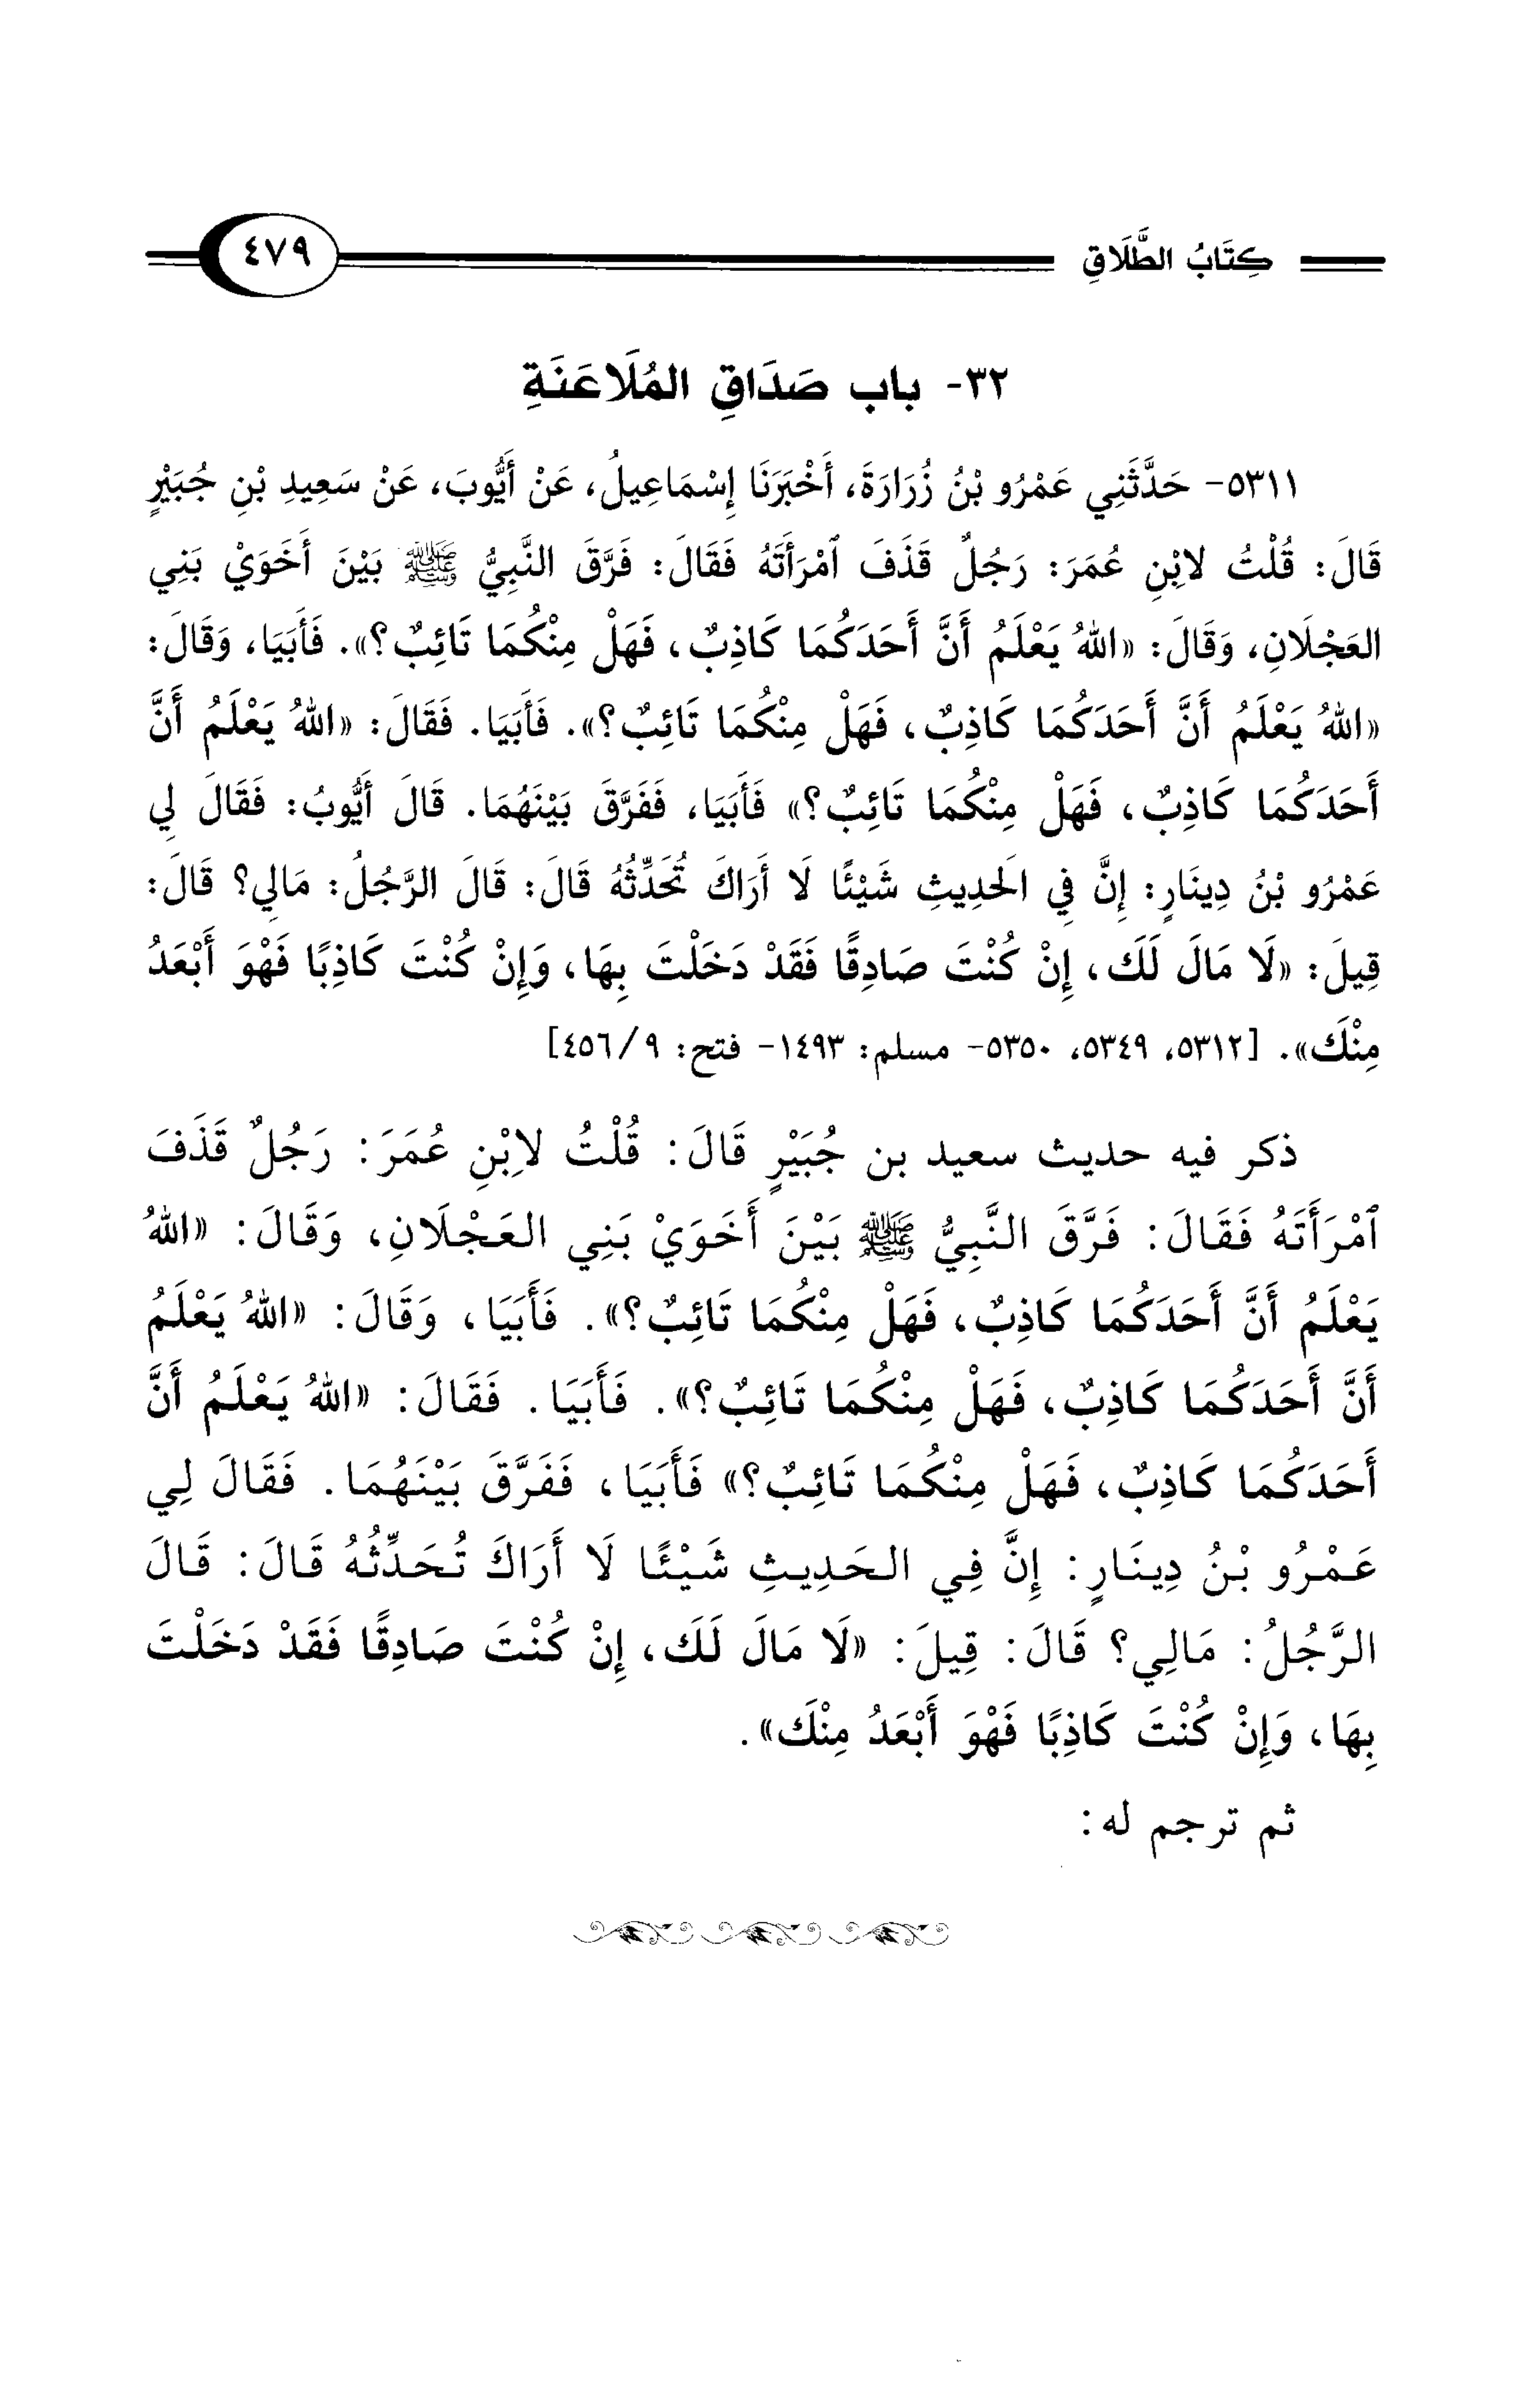 كِتَابُ الطَّلَاقِ ٤٧٩
٣٢- باب صَدَاقِ المُلَاعَنَةِ
٥٣١١- حَدَّثَنِي عَمْرُو بْنُ زُرَارَةَ، أَخْبَرَنَا إِسْمَاعِيلُ، عَنْ أَيُّوبَ، عَنْ سَعِيدِ بْنِ جُبَيْرٍ
قَالَ: قُلْتُ لاِبْنِ عُمَرَ: رَجُلٌ قَذَفَ ٱمْرَأَتَهُ فَقَالَ: فَرَّقَ النَّبِيُّ ﷺ بَيْنَ أَخَوَيْ بَنِي
العَجْلَانِ، وَقَالَ: «اللهُ يَعْلَمُ أَنَّ أَحَدَكُمَا كَاذِبٌ، فَهَلْ مِنْكُمَا تَائِبٌ؟». فَأَبَيَا، وَقَالَ:
«اللهُ يَعْلَمُ أَنَّ أَحَدَكُمَا كَاذِبٌ، فَهَلْ مِنْكُمَا تَائِبٌ؟». فَأَبَيَا. فَقَالَ: «اللهُ يَعْلَمُ أَنَّ
أَحَدَكُمَا كَاذِبٌ، فَهَلْ مِنْكُمَا تَائِبٌ؟» فَأَبَيَا، فَفَرَّقَ بَيْنَهُمَا. قَالَ أَيُّوبُ: فَقَالَ لِي
عَمْرُو بْنُ دِينَارٍ: إِنَّ فِي الَحدِيثِ شَيْئًا لَا أَرَاكَ تُحَدِّثُهُ قَالَ: قَالَ الرَّجُلُ: مَالِي؟ قَالَ:
قِيلَ: «لَا مَالَ لَكَ، إِنْ كُنْتَ صَادِقًا فَقَدْ دَخَلْتَ بِهَا، وَإِنْ كُنْتَ كَاذِبًا فَهْوَ أَبْعَدُ
مِنْكَ». [٥٣١٢، ٥٣٤٩، ٥٣٥٠- مسلم: ١٤٩٣- فتح: ٩/ ٤٥٦]
ذكر فيه حديث سعيد بن جُبَيْرٍ قَالَ: قُلْتُ لاِبْنِ عُمَرَ: رَجُلٌ قَذَفَ
ٱمْرَأَتَهُ فَقَالَ: فَرَّقَ النَّبِيُّ ﷺ بَيْنَ أَخَوَيْ بَنِي العَجْلَانِ، وَقَالَ: «اللهُ
يَعْلَمُ أَنَّ أَحَدَكُمَا كَاذِبٌ، فَهَلْ مِنْكُمَا تَائِبٌ؟». فَأَبَيَا، وَقَالَ: «اللهُ يَعْلَمُ
أَنَّ أَحَدَكُمَا كَاذِبٌ، فَهَلْ مِنْكُمَا تَائِبٌ؟». فَأَبَيَا. فَقَالَ: «اللهُ يَعْلَمُ أَنَّ
أَحَدَكُمَا كَاذِبٌ، فَهَلْ مِنْكُمَا تَائِبٌ؟» فَأَبَيَا، فَفَرَّقَ بَيْنَهُمَا. فَقَالَ لِي
عَمْرُو بْنُ دِينَارٍ: إِنَّ فِي الحَدِيثِ شَيْئًا لَا أَرَاكَ تُحَدِّثُهُ قَالَ: قَالَ
الرَّجُلُ: مَالِي؟ قَالَ: قِيلَ: «لَا مَالَ لَكَ، إِنْ كُنْتَ صَادِقًا فَقَدْ دَخَلْتَ
بِهَا، وَإِنْ كُنْتَ كَاذِبًا فَهْوَ أَبْعَدُ مِنْكَ».
ثم ترجم له: